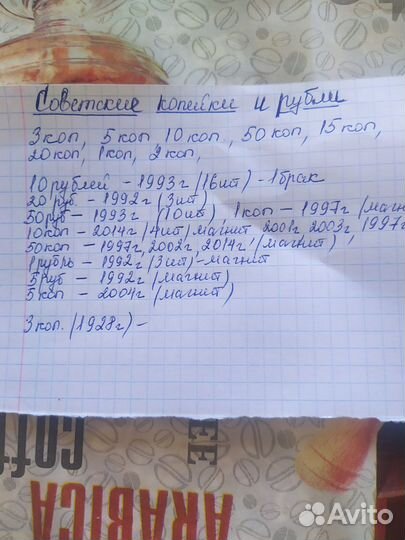 Советские копейки и рубли
3 коп, 5 коп 10 коп., 50 коп, 15 коп,
20 коп, 1 коп, 2 коп,
10 рублей - 1993г (16шт) - 1 брак
20 руб - 1992г (3шт)
50 руб - 1993г (10шт), 1 коп - 1997г (магнит
10 коп - 2014г (4шт) магнит 2001г, 2003г, 1997г
50 коп - 1997г, 2002г, 2014г (магнит)
1 рубль - 1992г (3шт) - магнит
5 руб - 1992г (магнит)
5 коп - 2004г (магнит)
3 коп. (1928г) -
COFFEE
ARABICA
Avito